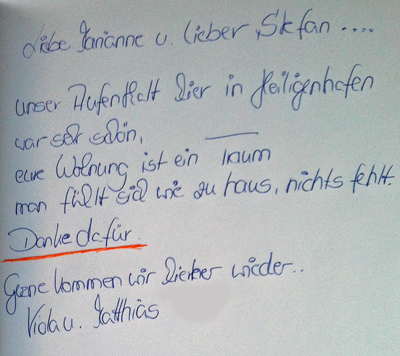 Liebe Marianne u. lieber Stefan ....
unser Aufenthalt hier in Heiligenhafen
war sehr schön,
eure Wohnung ist ein Traum
man fühlt sich wie zu haus, nichts fehlt.
Danke dafür
Gerne kommen wir hierher wieder..
Viola u. Matthias